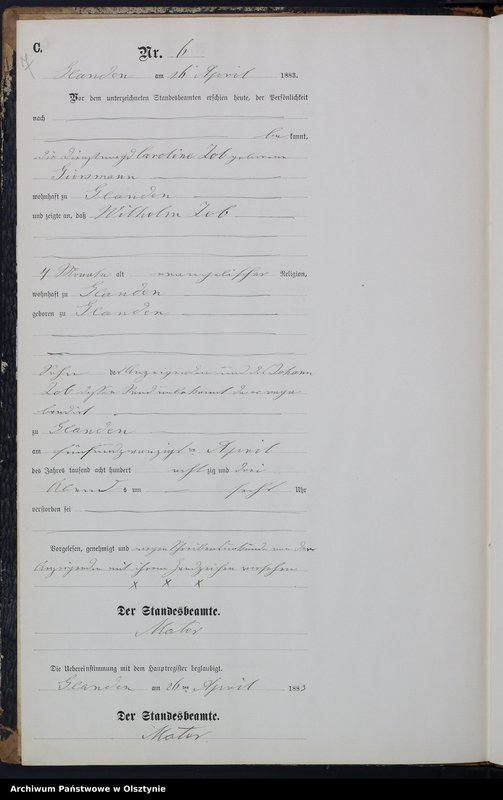 C.
Nr. 6
Glanden am 26 April 1883.
Vor dem unterzeichneten Standesbeamten erschien heute, der Persönlichkeit
nach
be kannt,
die Dienstmagd Caroline Zob geborene
wohnhaft zu Glanden
und zeigte an, daß Wilhelm Zob
4 Monate alt evangelischer Religion,
wohnhaft zu Glanden
geboren zu Glanden
Sohn der Anzeigenden und des Johann
Zob dessen Stand unbekannt da er vaga
bondirt
zu Glanden
am fünfundzwanzigsten April
des Jahres tausend acht hundert achtzig und drei
Abends um sechs Uhr
verstorben sei
Vorgelesen, genehmigt und wegen Schreibensunkunde von der
Anzeigenden mit ihrem Handzeichen versehen
x x x
Der Standesbeamte.
Mater
Die Uebereinstimmung mit dem Hauptregister beglaubigt.
Glanden am 26 ten April 1883
Der Standesbeamte.
Mater.
Archiwum Państwowe w Olsztynie